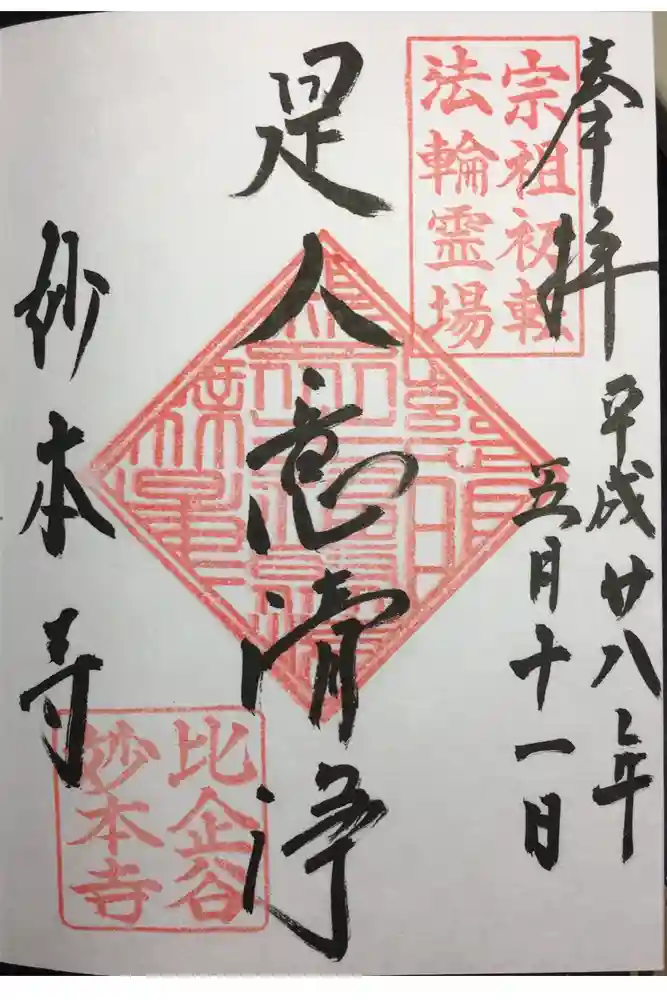 奉拝
平成廿八年
五月十一日
宗祖初転
法輪霊場
是人意清浄
妙本寺
比企谷
妙本寺